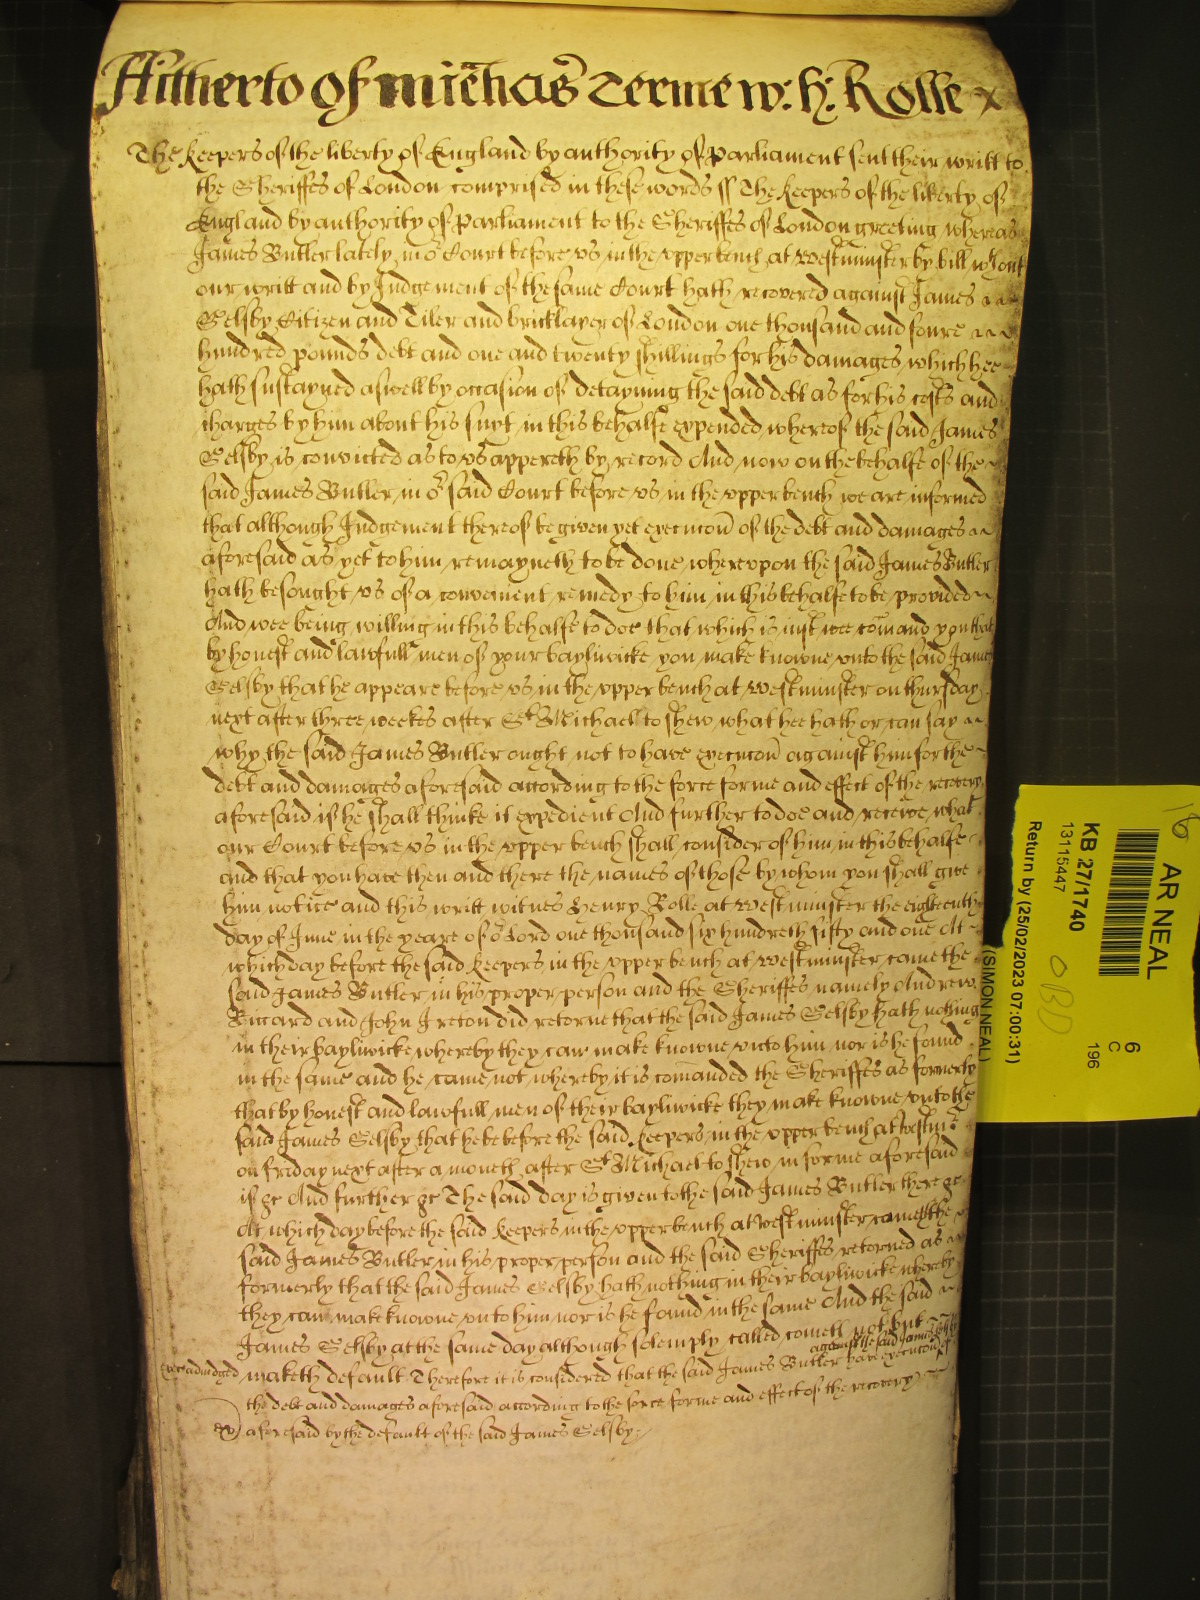 Hitherto of Micħas Terme w: H: Rolle x
The Keepers of the liberty of England by authority of Parliament sent their writt to
the Sheriffes of London comprised in these words ss The Keepers of the liberty of
England by authority of Parliament to the Sheriffes of London greeting whereas
James Butler lately in or Court before us in the upper bench at Westminster by bill wthout
our writt and by Judgement of the same Court hath recovered against James
Selsby Citizen and Tiler and bricklayer of London one thousand and foure
hundred pounds debt and one and twenty shillings for his damages which hee
hath sustayned aswell by occasion of detayning the said debt as for his costs and
charges by him about his suyt in this behalfe expended whereof the said James
Selsby is convicted as to us appereth by record And now on the behalfe of the
said James Butler in or said Court before us in the upper bench we are informed
that although Judgement thereof be given yet execucon of the debt and damages
aforesaid as yet to him remayneth to be done whereupon the said James Butler
hath besought us of a convenient remedy to him in this behalfe to be provided
And wee being willing in this behalfe to doe that which is just wee comand you that
by honest and lawfull men of your bayliwicke you make knowne unto the said James
Selsby that he appeare before us in the upper bench at Westminster on thursday
next after three weekes after St Michael to shew what hee hath or can say
why the said James Butler ought not to have execucon against him for the
debt and damages aforesaid according to the force forme and effect of the recovery
aforesaid if he shall thinke it expedient And further to doe and receive what
our Court before us in the upper bench shall consider of him in this behalfe
and that you have then and there the names of those by whom you shall give
him notice and this writt witnes Henry Rolle at Westminster the eighteenth
day of June in the yeare of or Lord one thousand six hundreth fifty and one At
which day before the said Keepers in the upper bench at Westminster came the
said James Butler in his proper person and the Sheriffes namely Andrew
Riccard and John Ireton did retorne that the said James Selsby hath nothing
in their bayliwicke whereby they can make knowne unto him nor is he found
in the same and he came not whereby it is comanded the Sheriffes as formerly
that by honest and lawfull men of their bayliwicke they make knowne unto the
said James Selsby that he be before the said Keepers in the upper bench at Westmr
on friday next after a moneth after St Michael to shew in forme aforesaid
if &c And further &c The said day is given to the said James Butler there &c
At which day before the said Keepers in the upper bench at Westminster cometh the
said James Butler in his proper person and the said Sheriffes retorned as
formerly that the said James Selsby hath nothing in their bayliwicke whereby
they can make knowne unto him nor is he found in the same And the said
James Selsby at the same day although solemply called cometh not but
against the said James Selsby
maketh default Therefore it is considered that the said James Butler have execucon of
the debt and damages aforesaid according to the force forme and effect of the recovery
aforesaid by the default of the said James Selsby
AR NEAL
6
C
196
KB 27/1740
13115447
Return by (25/02/2023 07:00:31)
(SIMON NEAL)